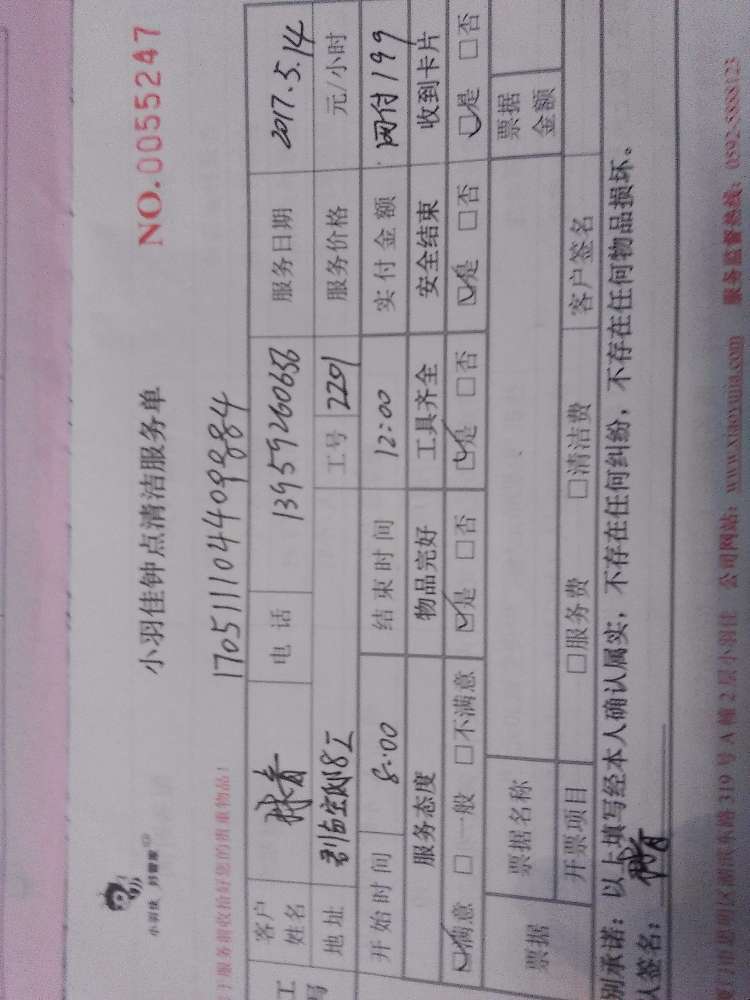 小羽佳 好管家
小羽佳钟点清洁服务单
NO.0055247
服务前收拾好您的贵重物品！
170511104409884
客户姓名 林青 电话 13959260656 服务日期 2017.5.14
地址 工号 2201 服务价格 元/小时
开始时间 8:00 结束时间 12:00 实付金额 网付199
服务态度 物品完好 工具齐全 安全结束 收到卡片
☑满意 □一般 □不满意 ☑是 □否 ☑是 □否 ☑是 □否 ☑是 □否
票据 票据名称 票据金额
开票项目 □服务费 □清洁费 客户签名
别承诺：以上填写经本人确认属实，不存在任何纠纷，不存在任何物品损坏。
人签名：林青
319号A幢2层小羽佳 公司网站：www.xiaoyujia.com 服务监督热线：0592-5888123